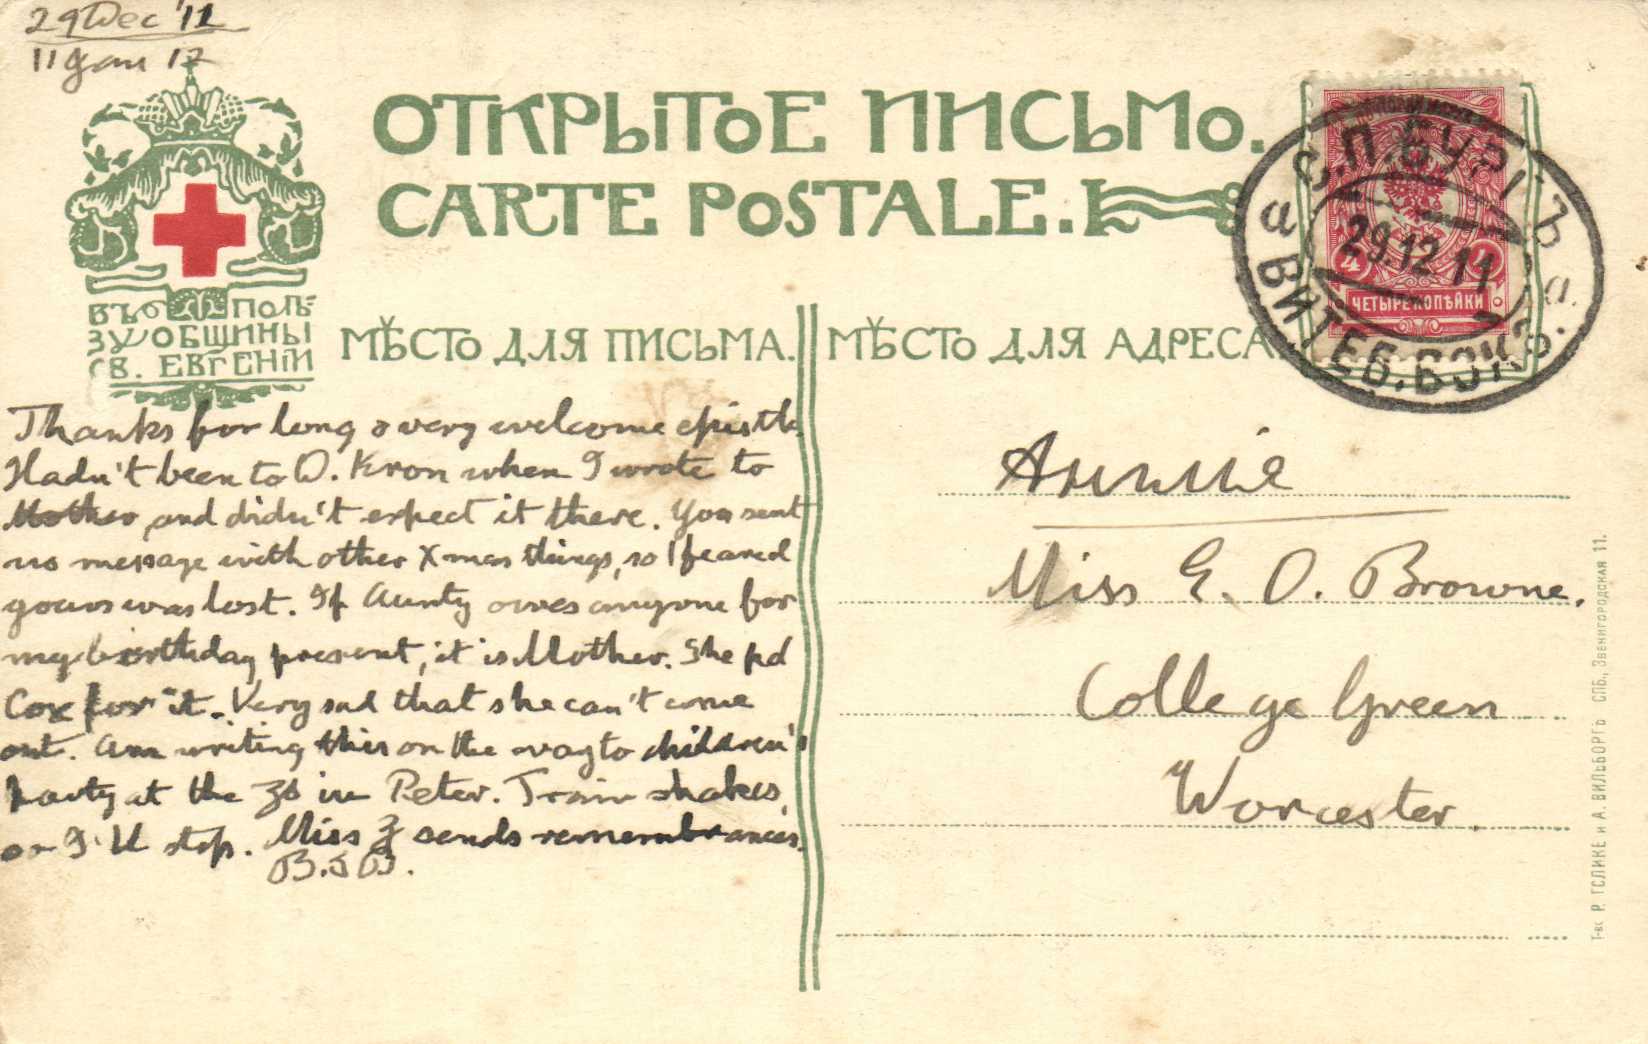 29 Dec '11
11 Jan 12
ОТКРЫТОЕ ПИСЬМО.
CARTE POSTALE.
ВЪ ПОЛЬ=
ЗУ ОБЩИНЫ
СВ. ЕВГЕНІИ
МѢСТО ДЛЯ ПИСЬМА.
МѢСТО ДЛЯ АДРЕСА.
С.П.БУРГЪ
29.12.11
ВИТЕБ. ВОКЗ.
а а
4 4
ЧЕТЫРЕ КОПѢЙКИ
Thanks for long & very welcome epistle.
Hadn't been to O. Kron when I wrote to
Mother, and didn't expect it there. You sent
no message with other Xmas things, so I feared
yours was lost. If Aunty owes anyone for
my birthday present, it is Mother. She pd
Cox for it. Very sad that she can't come
out. Am writing this on the way to children's
party at the Zs in Peter. Train shakes,
so I'll stop. Miss Z sends remembrances.
B.J.B.
Аннiе
Miss E. O. Browne.
College Green
Worcester.
Т-во Р. ГОЛИКЕ и А. ВИЛЬБОРГЪ СПБ., Звенигородская 11.